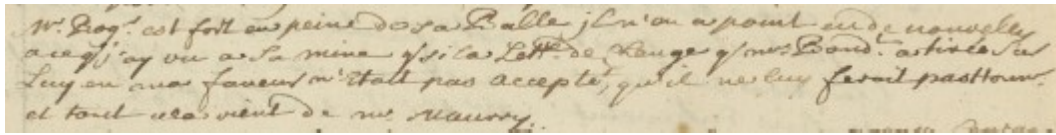 Mr. Rog.r est fort en peine de sa Balle jl n'en a point eu de nouvelles
a ce q j'ay vu a sa mine q si la Lettre de Change q mr. Bond.t a tirée sur
Luy en ma faveur n'etait pas accepté, qu'il ne luy feroit pas tenir
et tout cela vient de mr. Maurry.